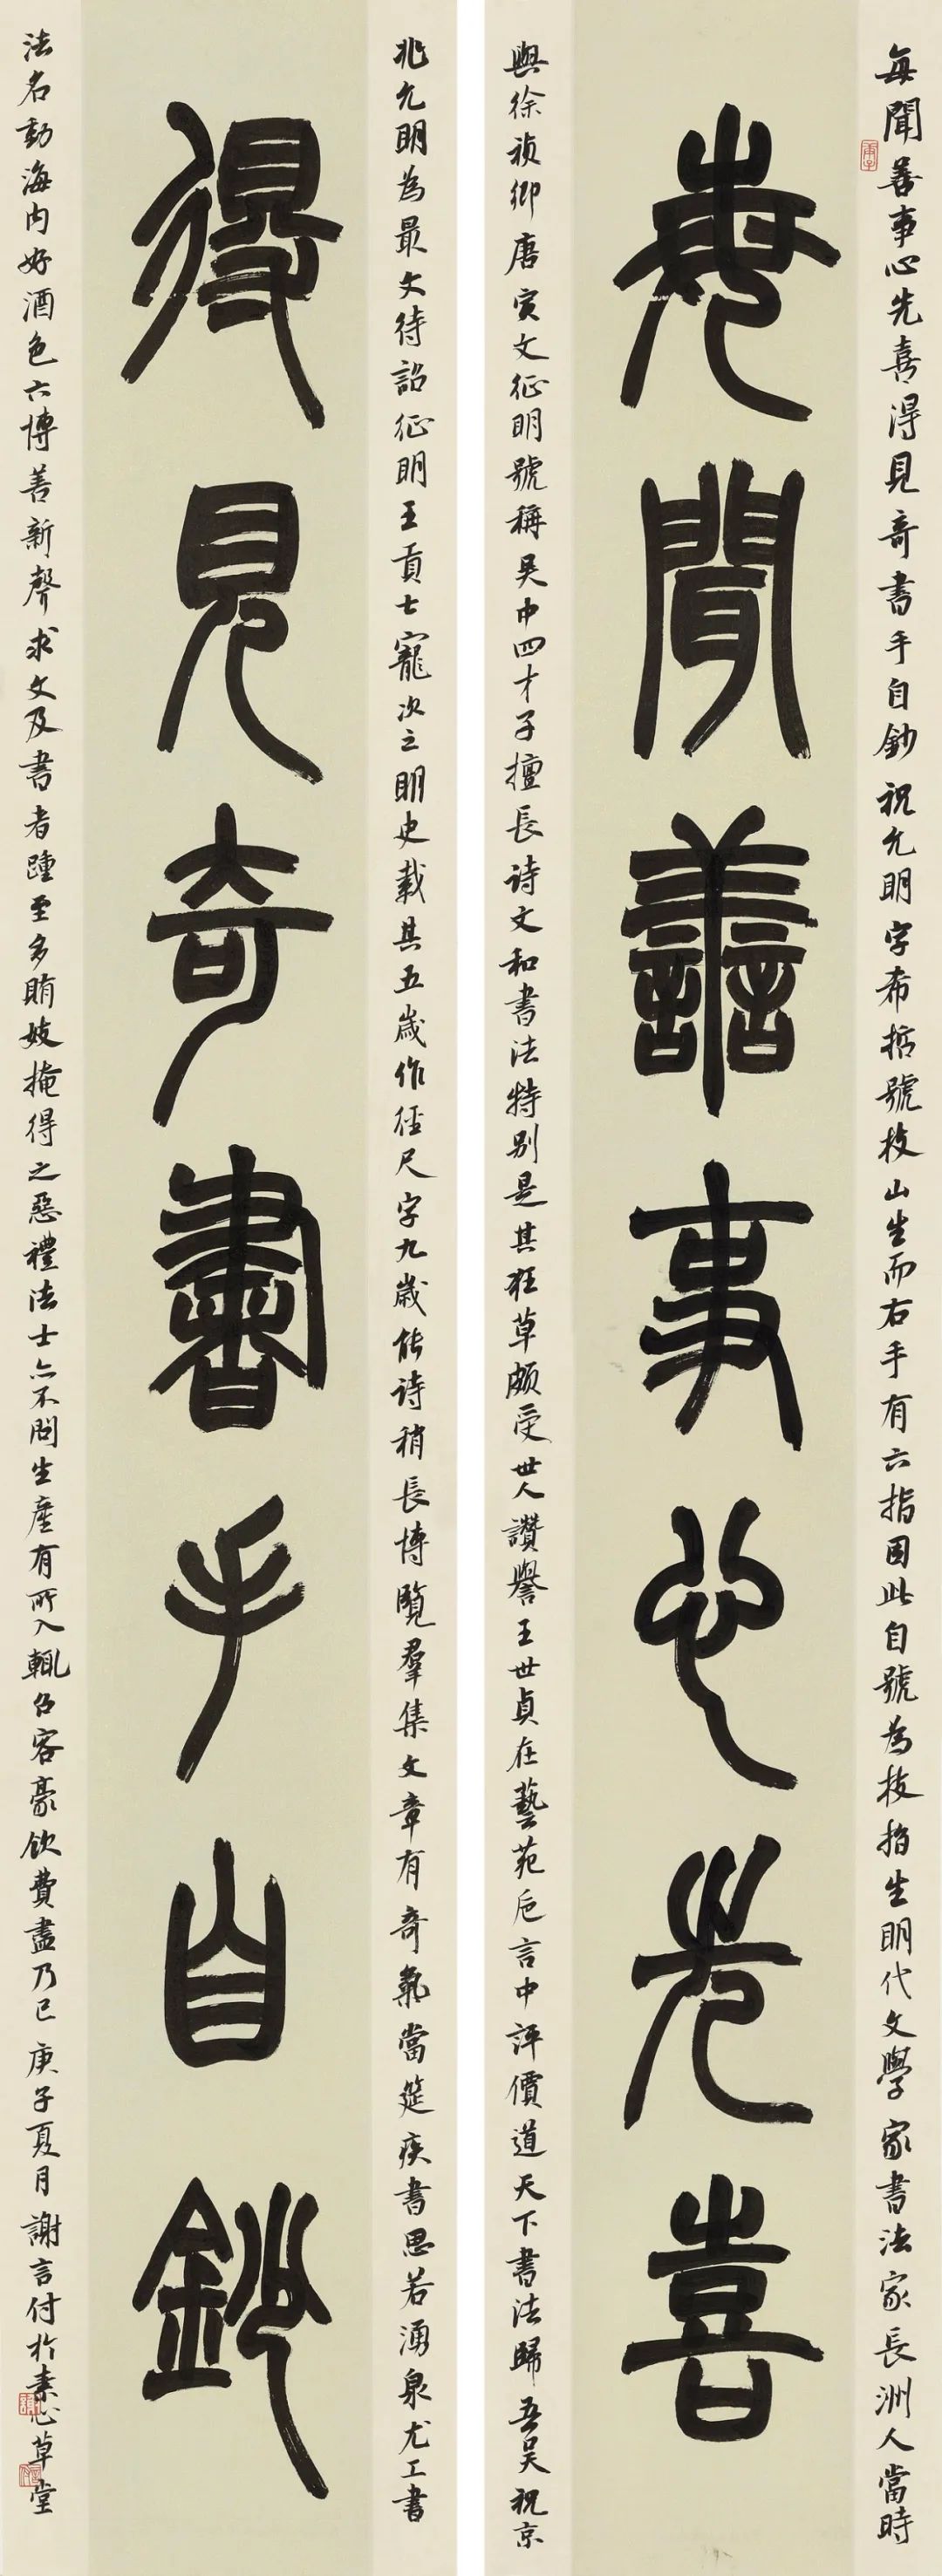 每聞善事心先喜得見奇書手自鈔祝允明字希哲號枝山生而右手有六指因此自號為枝指生明代文學家書法家長洲人當時
每聞善事心先喜
與徐禎卿唐寅文征明號稱吳中四才子擅長诗文和書法特别是其狂草颇受世人讚譽王世貞在藝苑卮言中評價道天下書法歸吾吴祝京
兆允明為最文待詔征明王貢士寵次之明史載其五歲作徑尺字九歲能诗稍長博覽羣集文章有奇氣當筵疾書思若湧泉尤工書
得見奇書手自鈔
法名動海内好酒色六博善新聲求文及書者踵至多賄妓掩得之惡禮法士亦不問生產有所入輒召客豪飲費盡乃已庚子夏月謝言付於素心草堂